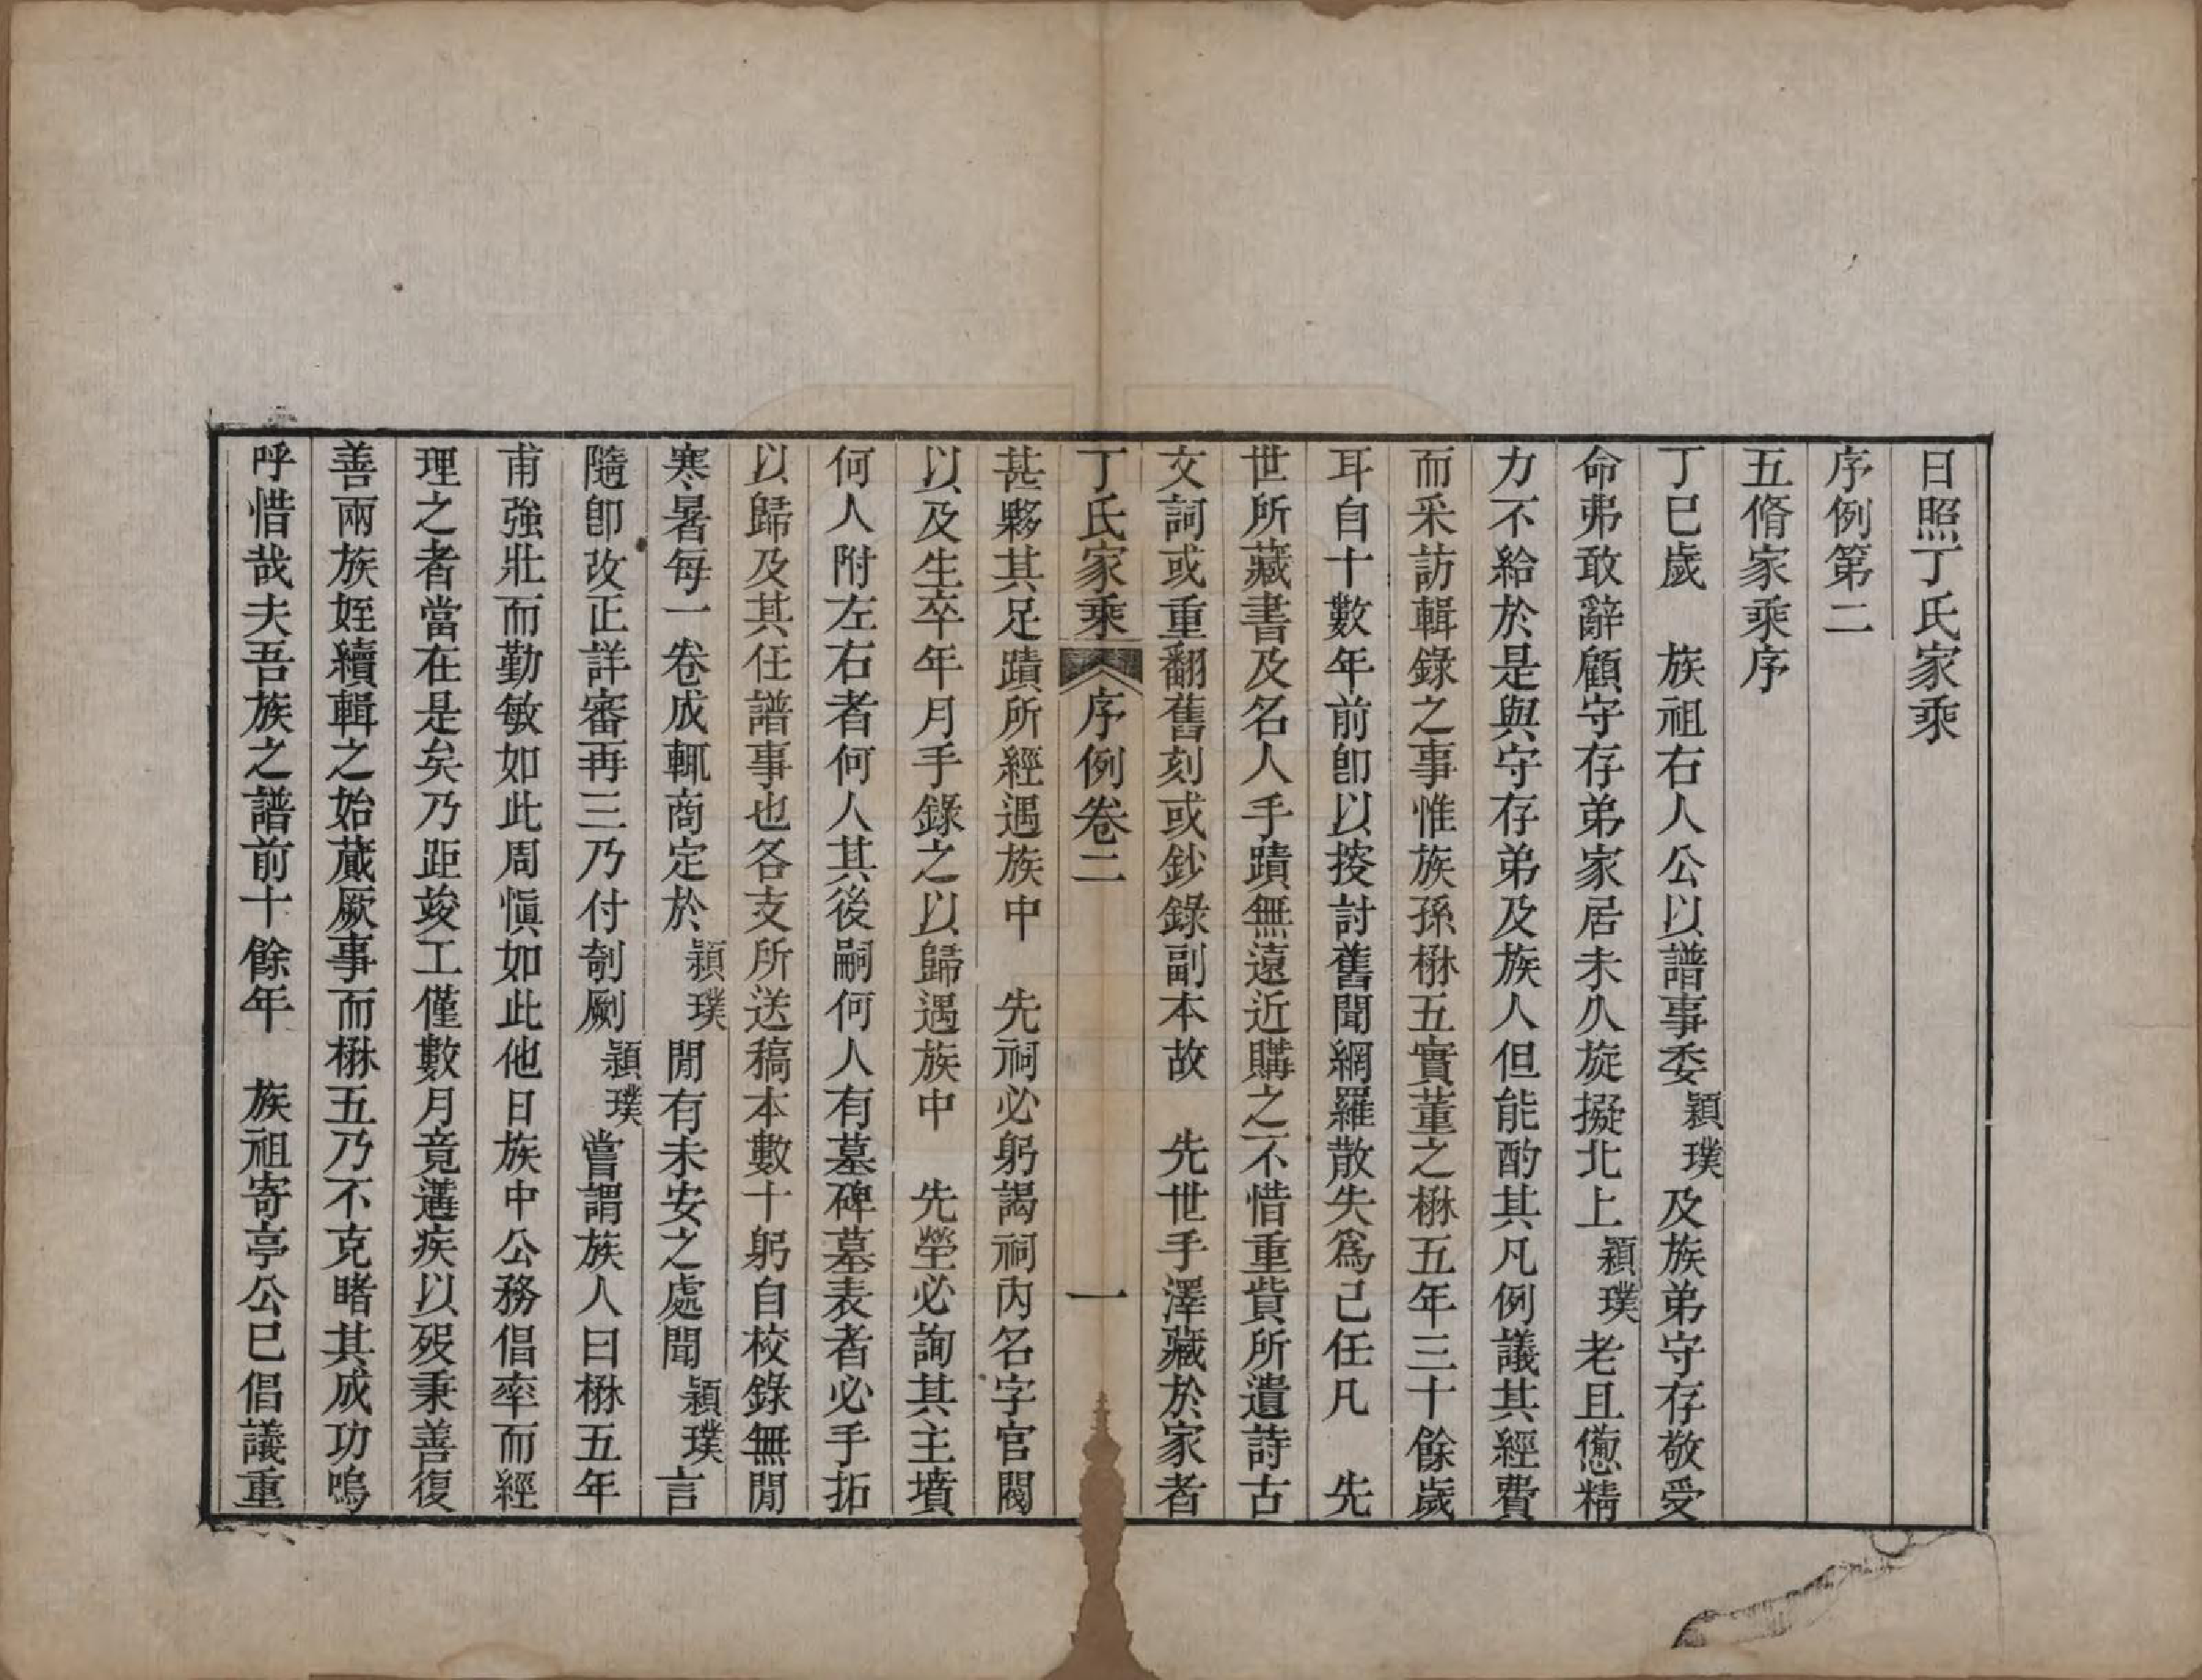 日照丁氏家乘
序例第二
五脩家乘序
丁巳歲　族祖右人公以譜事委穎璞及族弟守存敬受
命弗敢辭顧守存弟家居未久旋擬北上穎璞老且憊精
力不給於是與守存弟及族人但能酌其凡例議其經費
而采訪輯錄之事惟族孫楙五實董之楙五年三十餘歲
耳自十數年前卽以按討舊聞網羅散失爲己任凡　先
世所藏書及名人手蹟無遠近購之不惜重貲所遺詩古
文詞或重翻舊刻或鈔錄副本故　先世手澤藏於家者
丁氏家乘　序例卷二　一
甚夥其足蹟所經遇族中　先祠必躬謁祠內名字官閥
以及生卒年月手錄之以歸遇族中　先塋必詢其主墳
何人附左右者何人其後嗣何人有墓碑墓表者必手拓
以歸及其任譜事也各支所送稿本數十躬自校錄無閒
寒暑每一卷成輒商定於穎璞閒有未安之處聞穎璞言
隨卽改正詳審再三乃付剞劂穎璞嘗謂族人曰楙五年
甫強壯而勤敏如此周愼如此他日族中公務倡率而經
理之者當在是矣乃距竣工僅數月竟遘疾以歿秉善復
善兩族姪續輯之始蕆厥事而楙五乃不克睹其成功嗚
呼惜哉夫吾族之譜前十餘年　族祖寄亭公已倡議重